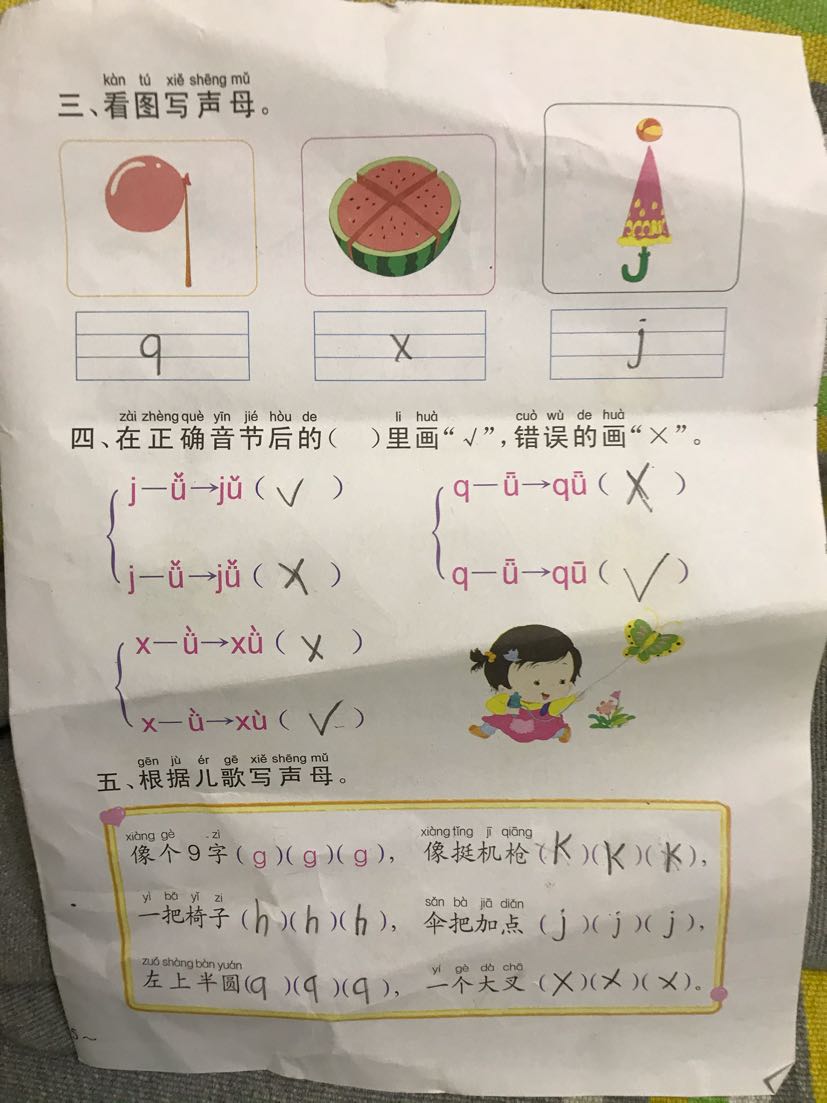 kàn tú xiě shēng mǔ
三、看图写声母。
q x j
zài zhèng què yīn jié hòu de lǐ huà cuò wù de huà
四、在正确音节后的( )里画“√”,错误的画“×”。
j—ǚ→jǔ(√) q—ǖ→qǖ(×)
j—ǚ→jǚ(×) q—ǖ→qū(√)
x—ǜ→xǜ(×)
x—ǜ→xù(√)
gēn jù ér gē xiě shēng mǔ
五、根据儿歌写声母。
xiàng gè zì xiàng tǐng jī qiāng
像个9字(g)(g)(g),像挺机枪(k)(k)(k),
yì bǎ yǐ zi sǎn bà jiā diǎn
一把椅子(h)(h)(h),伞把加点(j)(j)(j),
zuǒ shàng bàn yuán yí gè dà chā
左上半圆(q)(q)(q),一个大叉(x)(x)(x)。